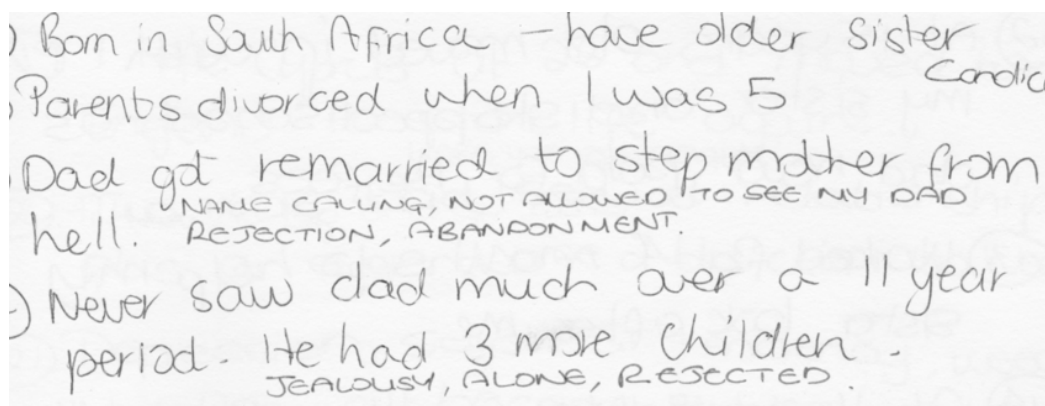 ) Born in South Africa - have older sister
Candic
) Parents divorced when I was 5
) Dad got remarried to step mother from
NAME CALLING, NOT ALLOWED TO SEE MY DAD
hell. REJECTION, ABANDONMENT.
) Never saw dad much over a 11 year
period. He had 3 more children.
JEALOUSY, ALONE, REJECTED.